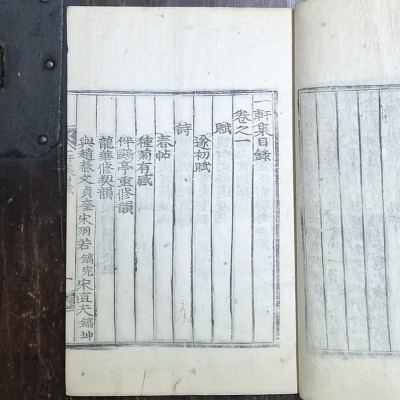 一軒集目錄
卷之一
賦
遂初賦
詩
春帖
種菊有感
伴鷗亭重修韻
龍華修契韻
與趙蔡文貞奎宋羽若鎬完宋直夫鎬坤
一軒集目錄